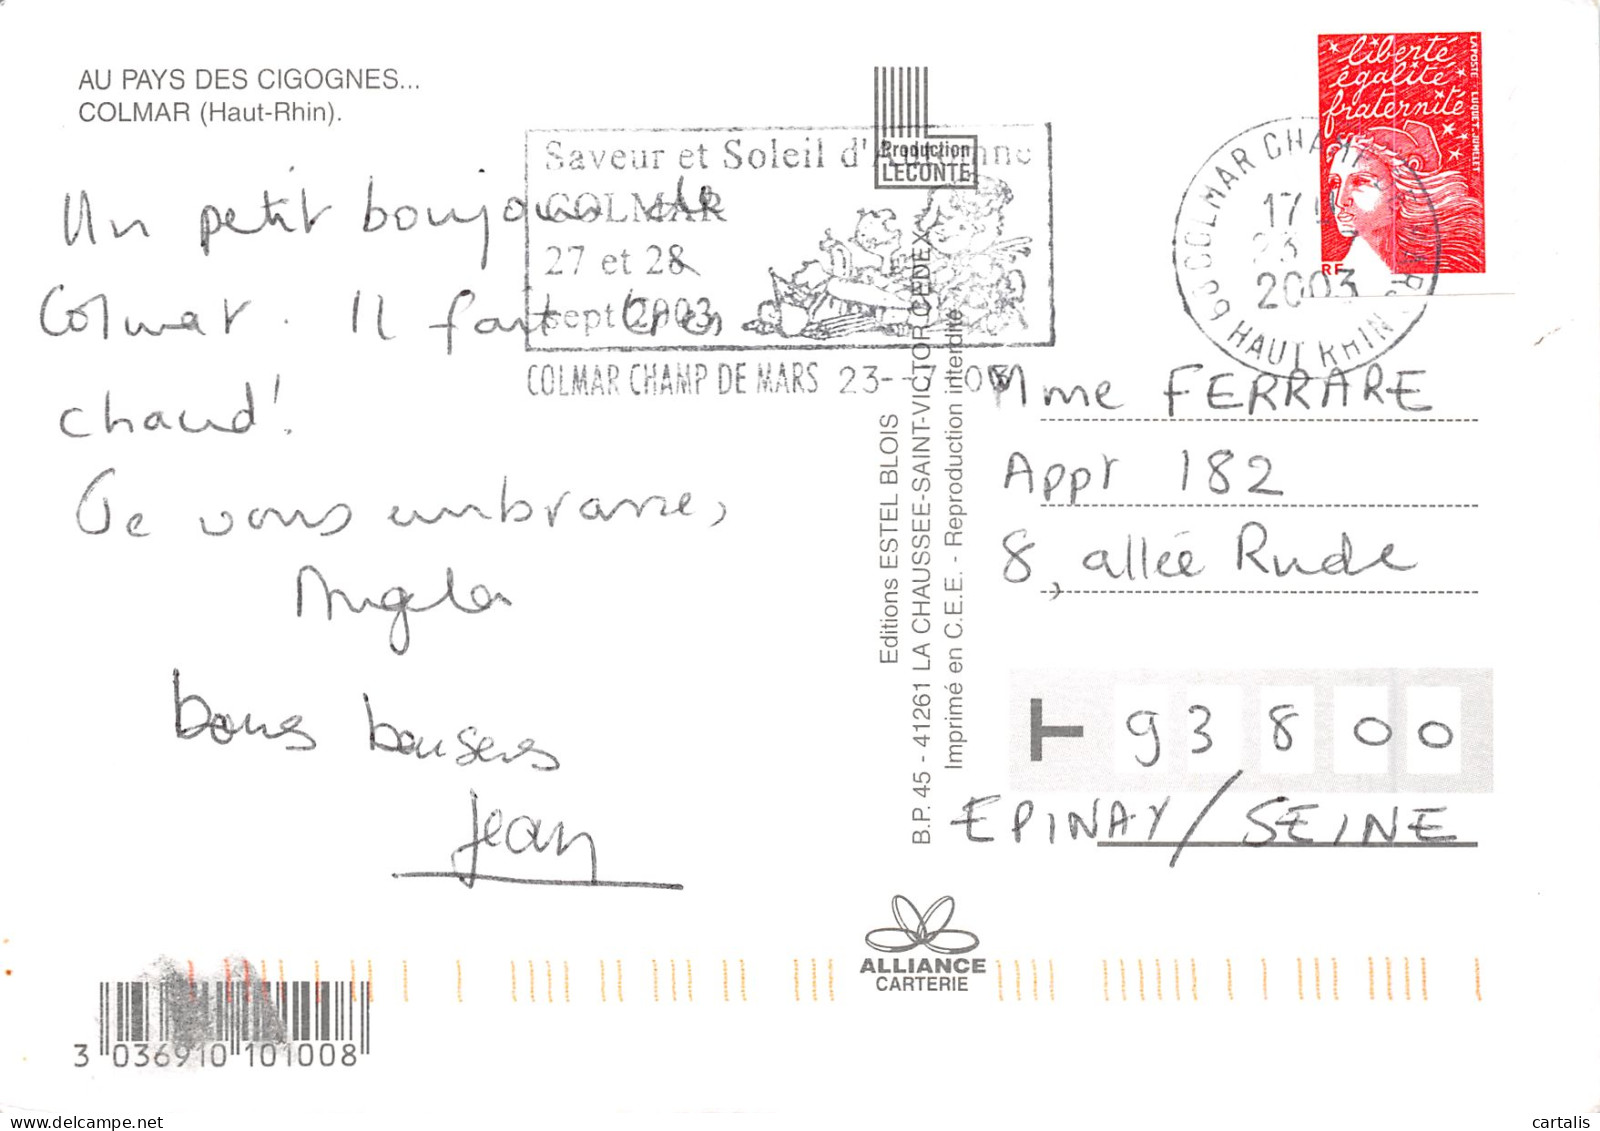 AU PAYS DES CIGOGNES...
COLMAR (Haut-Rhin).
Un petit bonjour de
Colmar. Il fait très
chaud!
Je vous embrasse,
Angela
bons baisers
Jean
Saveur et Soleil d'Automne
COLMAR
27 et 28
sept 2003
COLMAR CHAMP DE MARS 23-7 03
Production
LECONTE
Editions ESTEL BLOIS
B.P. 45 - 41261 LA CHAUSSEE-SAINT-VICTOR CEDEX
Imprimé en C.E.E. - Reproduction interdite
liberté
égalité
fraternité
LAPOSTE LUQUET-JUMELET
RF
COLMAR CHAMP DE MARS
17 H
23
2003
68 HAUT RHIN
Mme FERRARE
Appt 182
8, allée Rude
T 93800
EPINAY/SEINE
ALLIANCE
CARTERIE
3 036910 101008
cartalis